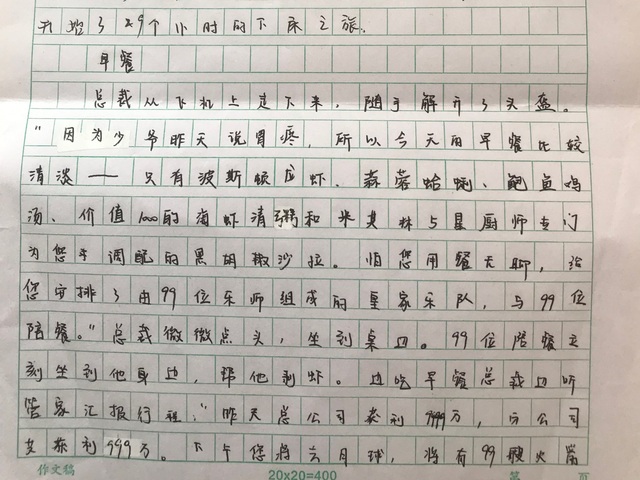 开始了299个小时的下床之旅。
早餐
总裁从飞机上走下来，随手解开了头盔。
“因为少爷昨天说胃疼，所以今天的早餐比较
清淡——只有波斯顿龙虾、蒜蓉蛤蜊、鲍鱼鸡
汤、价值1000的海虾清粥和米其林5星厨师专门
为您手调配的黑胡椒沙拉。怕您用餐无聊，给
您安排了由99位乐师组成的皇家乐队，与99位
陪餐。”总裁微微点头，坐到桌边。99位陪餐立
刻坐到他身边，帮他剥虾。边吃早餐总裁边听
管家汇报行程：“昨天总公司卖利999万，分公司
艾泰利999万。下午您将去月球，将有99艘火箭
作文稿
20×20=400
第 页